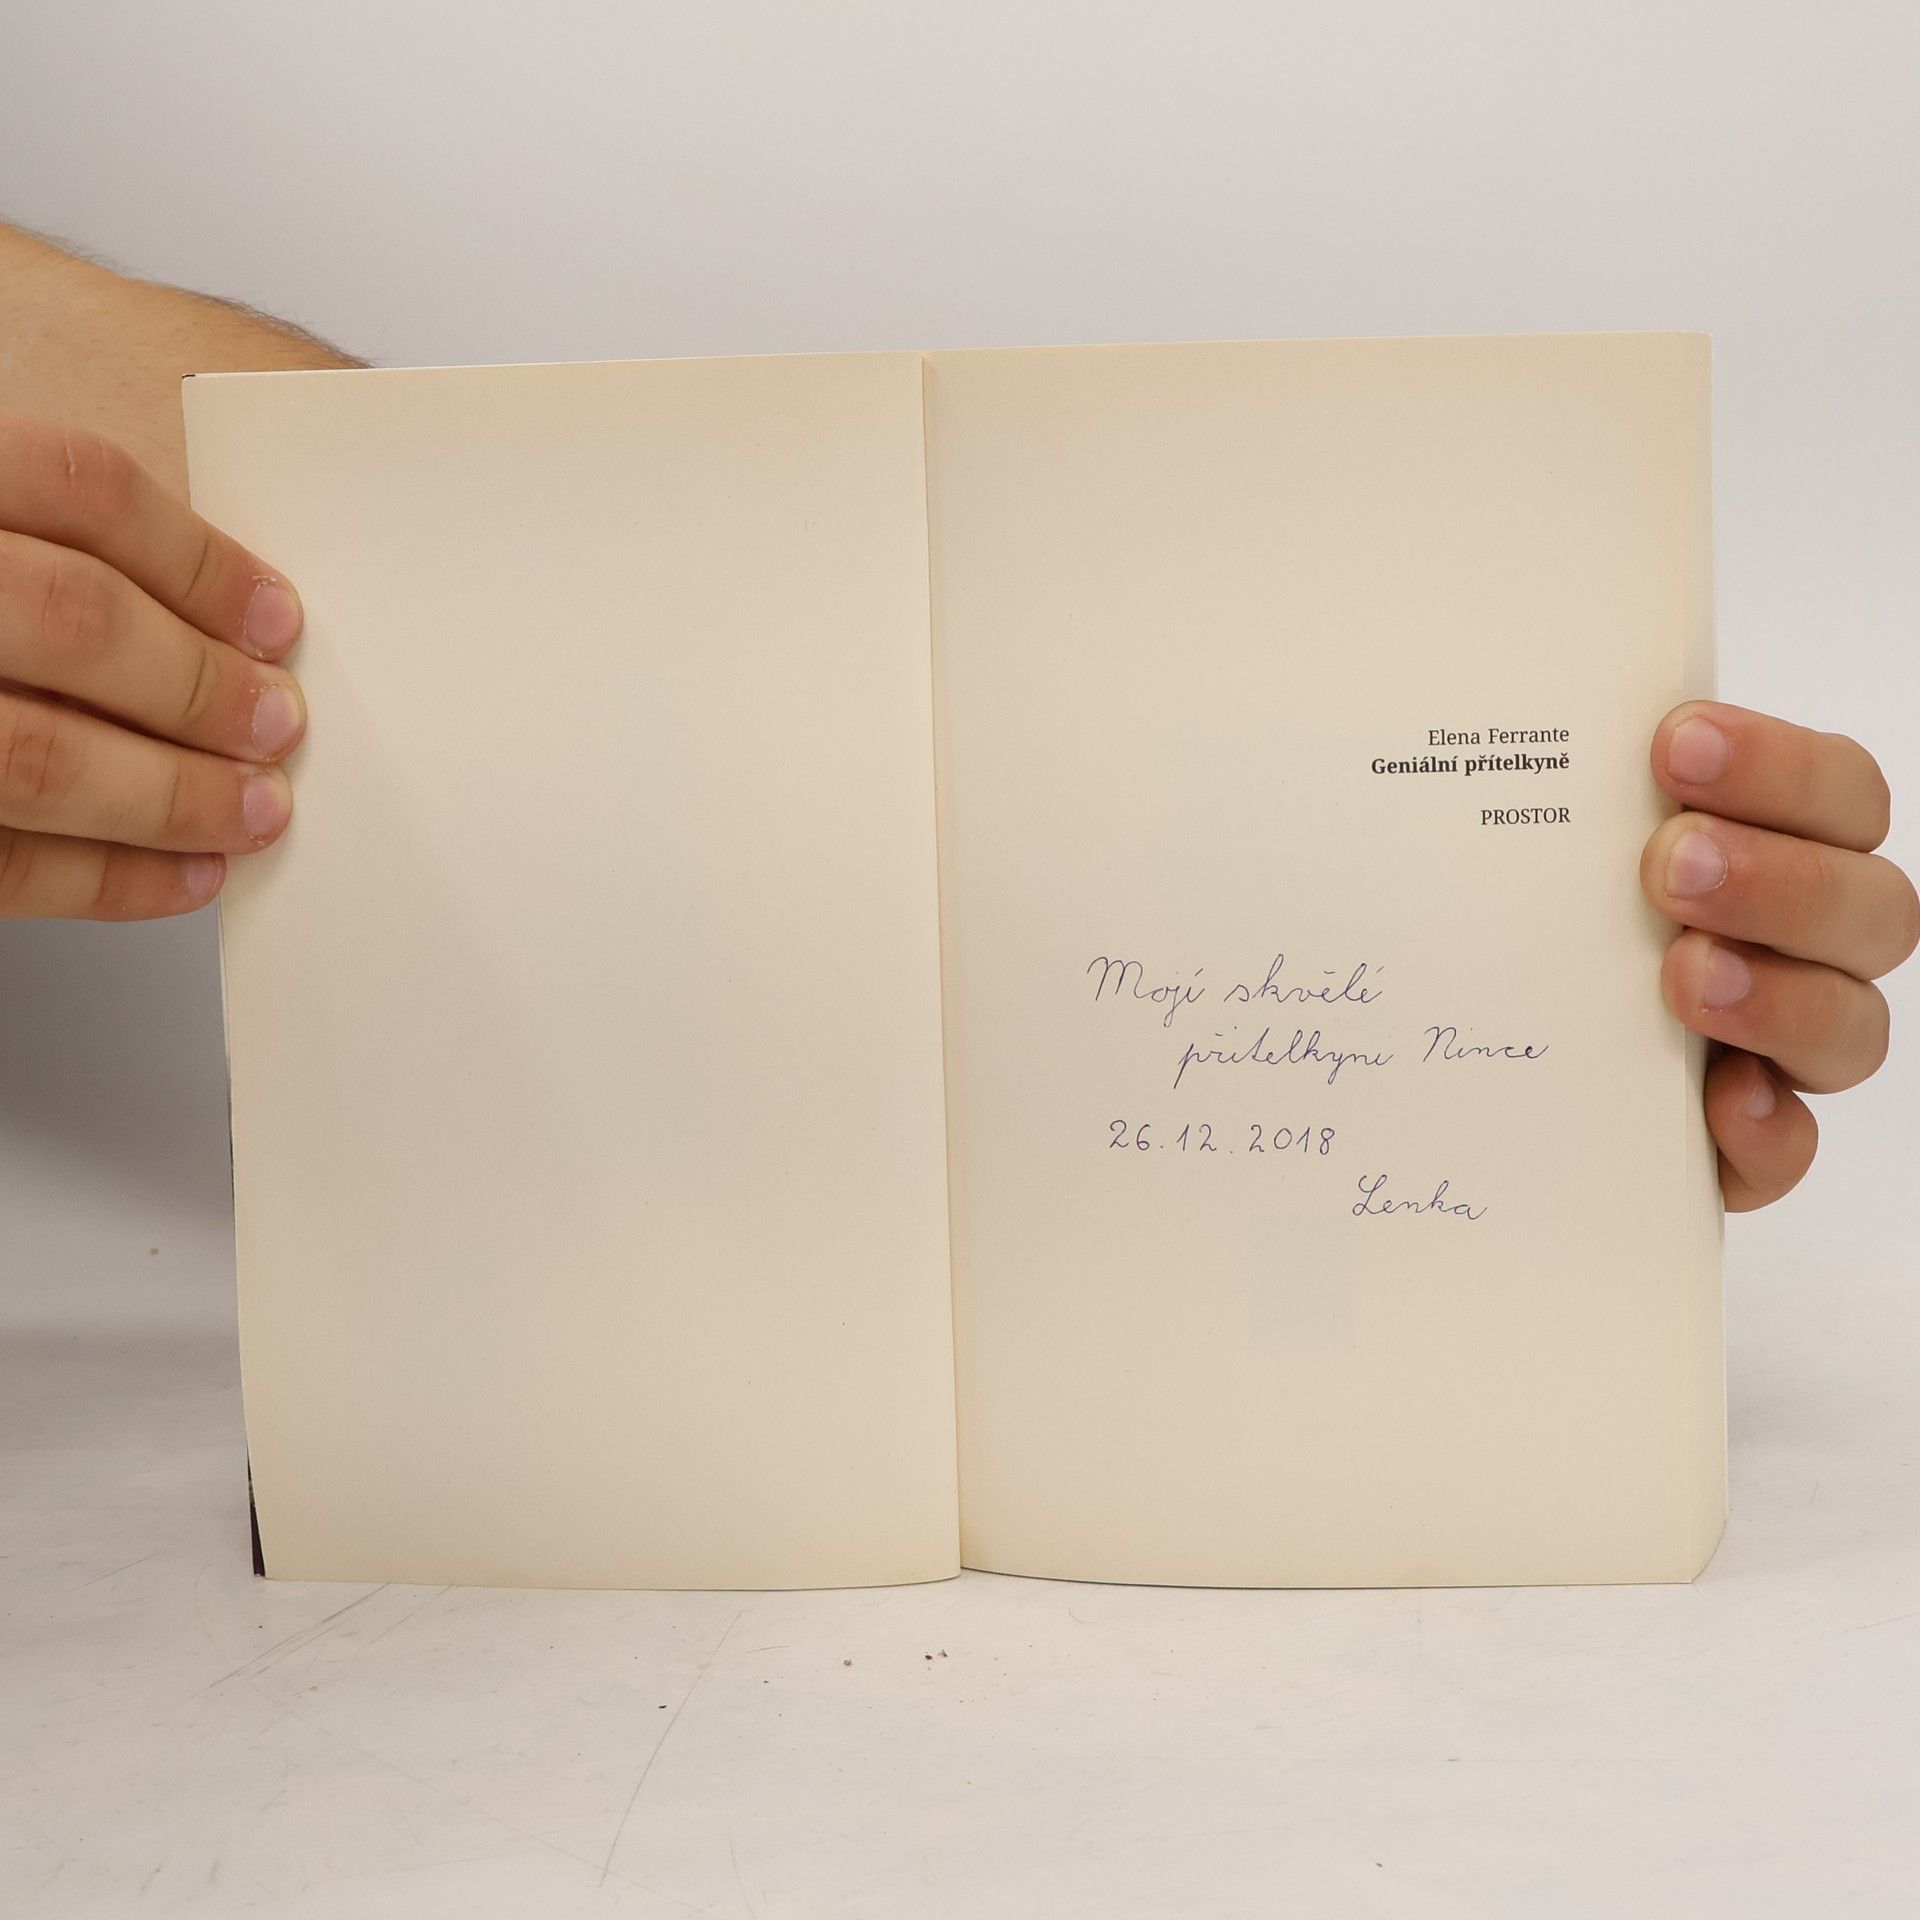 Elena Ferrante
Geniální přítelkyně
PROSTOR
Mojí skvělé
přítelkyni Nince
26.12.2018
Lenka